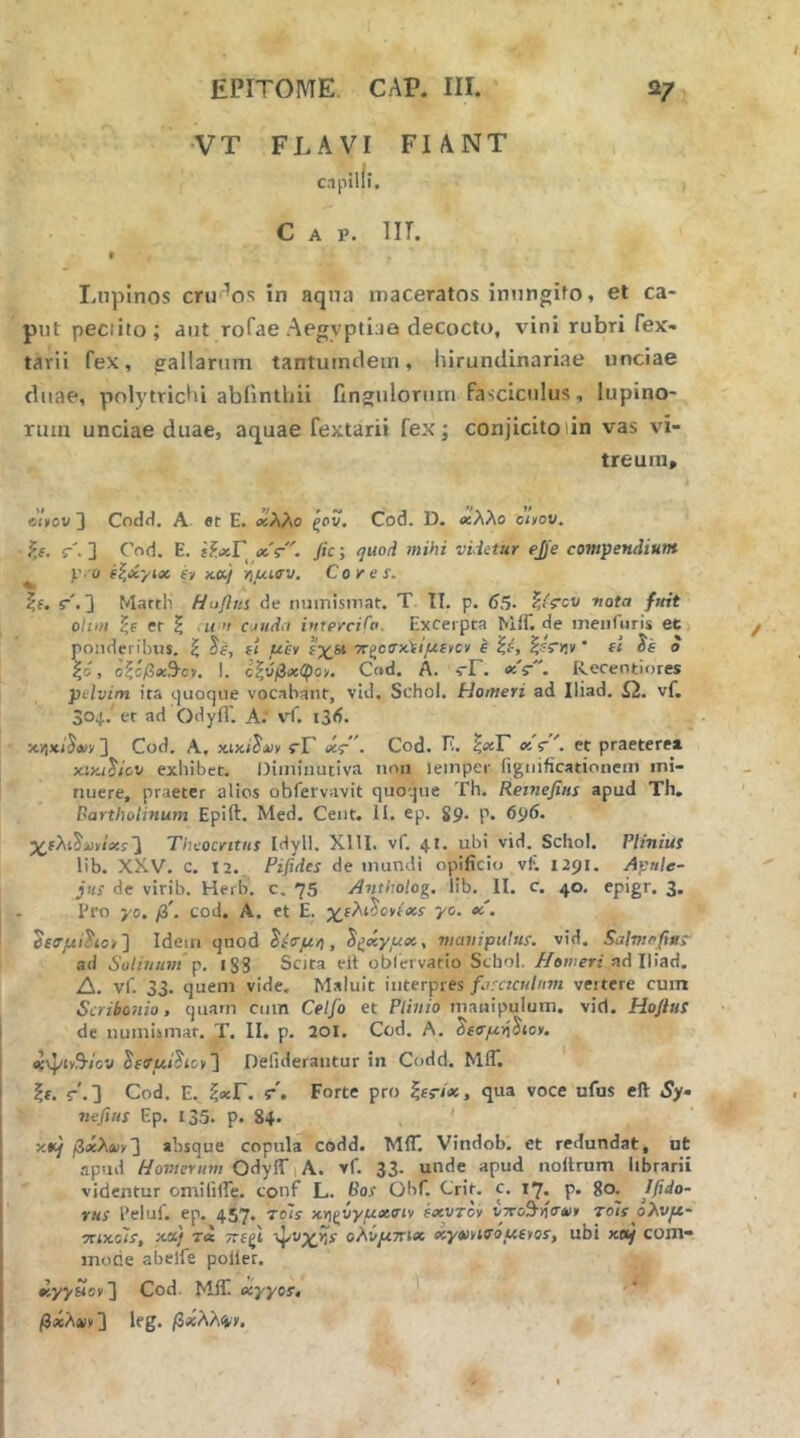 EPITOME. CAP. III. 27
VT FLAVI FIANT
capilli.
CAP. III.
Lupinos crudos in aqua maceratos inungito, et ca-
put pectito; aut roſae Aegyptiae decocto, vini rubri ſex-
tarii ſex, gallarum tantumdem, hirundinariae unciae
duae, polytrichi abſinthii ſingulorum faſciculus, lupino-
rum unciae duae, aquae ſextarii ſex; conjicito in vas vi-
treum,
οἴνου ] Codd. A. et E. ἄλλο ῥοῦ. Cod. D. ἄλλο οἴνου.
ξε. ϛʹ. ] Cod. E. ἐξαΓ αʹϛʺ. ſic; quod mihi videtur eſſe compendium
pro ἑξάγια ἓν καὶ ἥμισυ. Cores.
ξε. ϛʹ.] Matth Hoſtus de numismat. T. II. p. 65. ξέϛου nota fuit
olim ξε et ξ cum cauda interciſa. Excerpta Mſſ. de menſuris et
ponderibus. ξ δὲ, εἰ μὲν ἔχει προσκείμενον ε ξέ, ξέϛην · εἰ δὲ ὀ
ξό, ὀξόβαθον. l. ὀξύβαφον. Cod. A. ϛΓ. αʹϛʺ. Recentiores
pelvim ita quoque vocabant, vid. Schol. Homeri ad Iliad. Ω. vſ.
304. et ad Odyſſ. A. vſ. 136.
κηκίδων ] Cod. A. κικίδων ϛΓ αϛʺ. Cod. E. ξαΓ αʹϛʺ. et praeterea
κικιδίου exhibet. Diminutiva non ſemper ſignificationem mi-
nuere, praeter alios obſervavit quoque Th. Reineſius apud Th.
Bartholinum Epiſt. Med. Cent. II. ep. 89. p. 696.
χελιδωνίας] Theocritus Idyll. XIII. vſ. 41. ubi vid. Schol. Plinius
lib. XXV. c. 12. Piſides de mundi opificio vſ. 1291. Apule-
jus de virib. Herb. c. 75 Antholog. lib. II. c. 40. epigr. 3.
Pro γο. βʹ. cod. A. et E. χελιδονίας γο. αʹ.
δεσμίδιον] Idem quod δέσμη, δράγμα, manipulus. vid. Salmaſius
ad Solinum p. 188 Scita eſt obſervatio Schol. Homeri ad Iliad.
Δ. vſ. 33. quem vide. Maluit interpres faſciculum vertere cum
Scribonio, quam cum Celſo et Plinio manipulum. vid. Hoſtus
de numismat. T. II. p. 201. Cod. A. δεσμήδιον.
ἀψινθίου δεσμίδιον] Deſiderantur in Codd. Mſſ.
ξε. ϛʹ.] Cod. E. ξαΓ. ϛʹ. Forte pro ξεϛία, qua voce uſus eſt Sy-
neſius Ep. 135. p. 84.
καὶ βάλων] absque copula codd. Mſſ. Vindob. et redundat, ut
apud Homerum Odyſſ. A. vſ. 33. unde apud noſtrum librarii
videntur omiſiſſe. conf L. Bos Obſ. Crit. c. 17. p. 80. Iſido-
rus Peluſ. ep. 457. τοῖς κηρύγμασιν ἑαυτὸν ὑποθήσων τοῖς ὀλυμ-
πικοῖς, καὶ τὰ περὶ ψυχῆς ὀλύμπια ἀγωνισόμενος, ubi καὶ com-
mode abeſſe poſſet.
ἀγγεῖον] Cod. Mſſ. ἄγγος.
βάλων] leg. βάλλων.